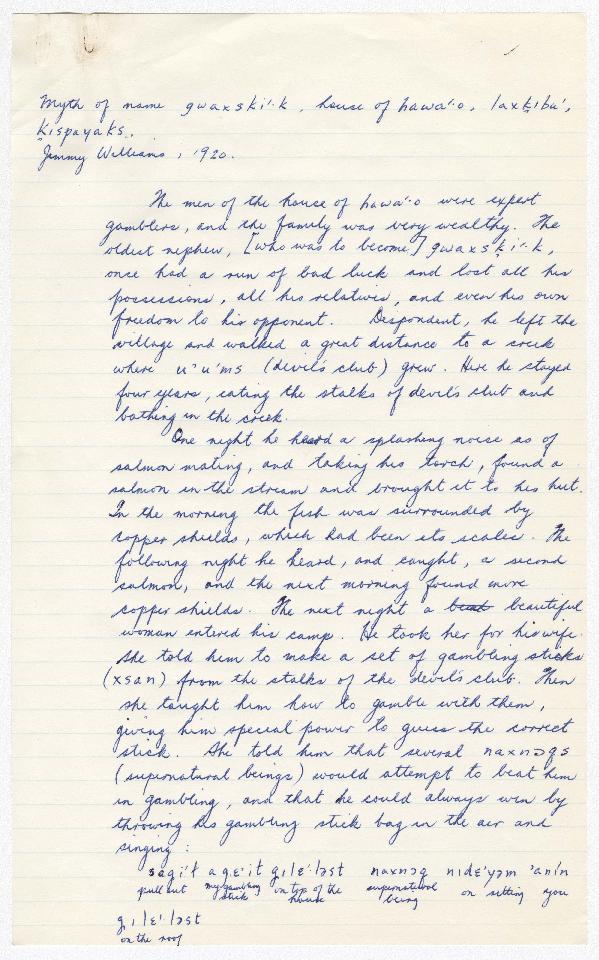 Myth of name gwaxski'·k, house of hawa'·o, laxḵibu',
Ḵispayaks.
Jimmy Williams, 1920.
The men of the house of hawa'·o were expert
gamblers, and the family was very wealthy. The
oldest nephew, [who was to become] gwaxsḵi'·k,
once had a run of bad luck and lost all his
possessions, all his relatives, and even his own
freedom to his opponent. Despondent, he left the
village and walked a great distance to a creek
where u'u'ms (devil's club) grew. Here he stayed
four years, eating the stalks of devil's club and
bathing in the creek.
One night he heard a splashing noise as of
salmon mating, and taking his torch, found a
salmon in the stream and brought it to his hut.
In the morning the fish was surrounded by
copper shields, which had been its scales. The
following night he heard, and caught, a second
salmon, and the next morning found more
copper shields. The next night a beautiful
woman entered his camp. He took her for his wife.
She told him to make a set of gambling sticks
(xsan) from the stalks of the devil's club. Then
she taught him how to gamble with them,
giving him special power to guess the correct
stick. She told him that several naxnɔgs
(supernatural beings) would attempt to beat him
in gambling, and that he could always win by
throwing his gambling stick bag in the air and
singing:
sagi't agɛ'it gılɛ'lɔst naxnɔg nıdɛ'yɔm 'anı'n
pull out my gambling stick on top of the house supernatural being on sitting you
gılɛ'lɔst
on the roof